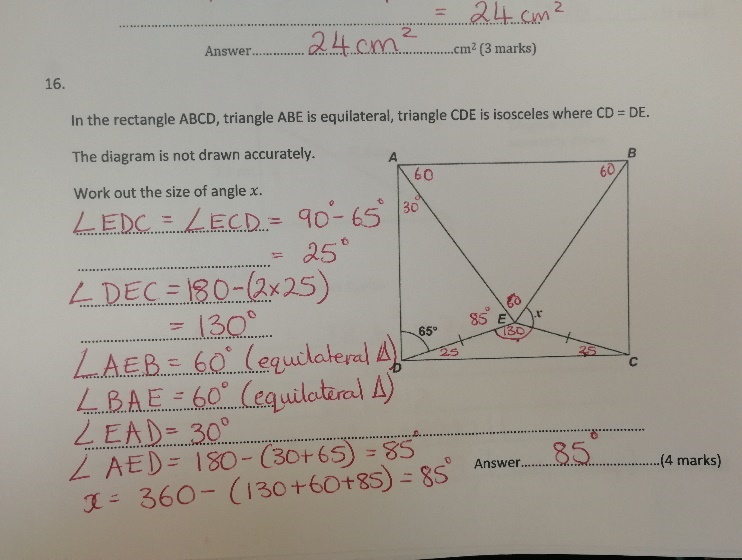 = 24 cm²
Answer............ 24 cm² ............cm² (3 marks)
16.
In the rectangle ABCD, triangle ABE is equilateral, triangle CDE is isosceles where CD = DE.
The diagram is not drawn accurately.
Work out the size of angle x.
A
B
60
60
30°
60
85°
E
x
130
65°
25
25
D
C
∠EDC = ∠ECD = 90° - 65°
= 25°
∠DEC = 180 - (2×25)
= 130°
∠AEB = 60° (equilateral Δ)
∠BAE = 60° (equilateral Δ)
∠EAD = 30°
∠AED = 180 - (30+65) = 85°
x = 360 - (130+60+85) = 85°
Answer............ 85° ............(4 marks)